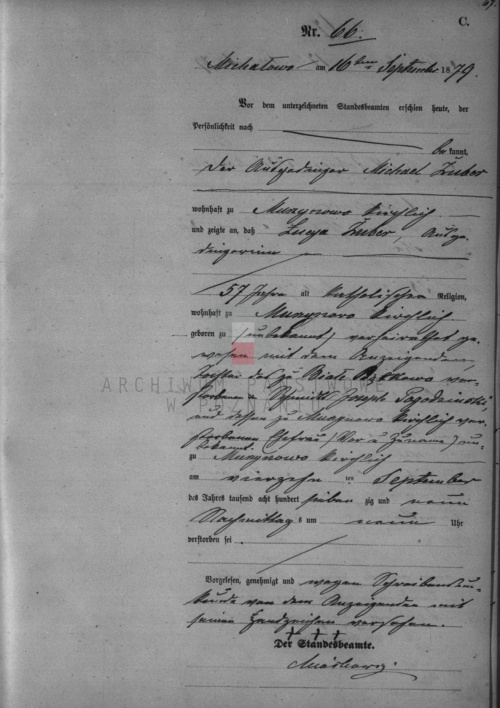 C.
Nr. 66.
Michałowo am 16ten September 1879.
Vor dem unterzeichneten Standesbeamten erschien heute, der
Persönlichkeit nach
bekannt,
der Ausgedinger Michael Zuber
wohnhaft zu Murzynowo kirchlich
und zeigte an, daß Lucya Zuber, Ausge-
dingerin
57 Jahre alt katholischer Religion,
wohnhaft zu Murzynowo kirchlich
geboren zu (unbekannt) verheirathet ge-
wesen mit dem Anzeigenden,
Tochter des zu Piątkowo ver-
storbenen Schmidt Joseph Pogodzinski,
und dessen zu Murzynowo kirchlich ver-
storbenen Ehefrau (Vor u Zuname) un-
bekannt.
zu Murzynowo kirchlich
am vierzehn ten September
des Jahres tausend acht hundert sieben zig und neun
Nachmittags um neun Uhr
verstorben sei
Vorgelesen, genehmigt und wegen Schreibensun-
kunde von dem Anzeigenden mit
seinen Handzeichen versehen.
+ + +
Der Standesbeamte.
ARCHIWUM PAŃSTWOWE
W POZNANIU